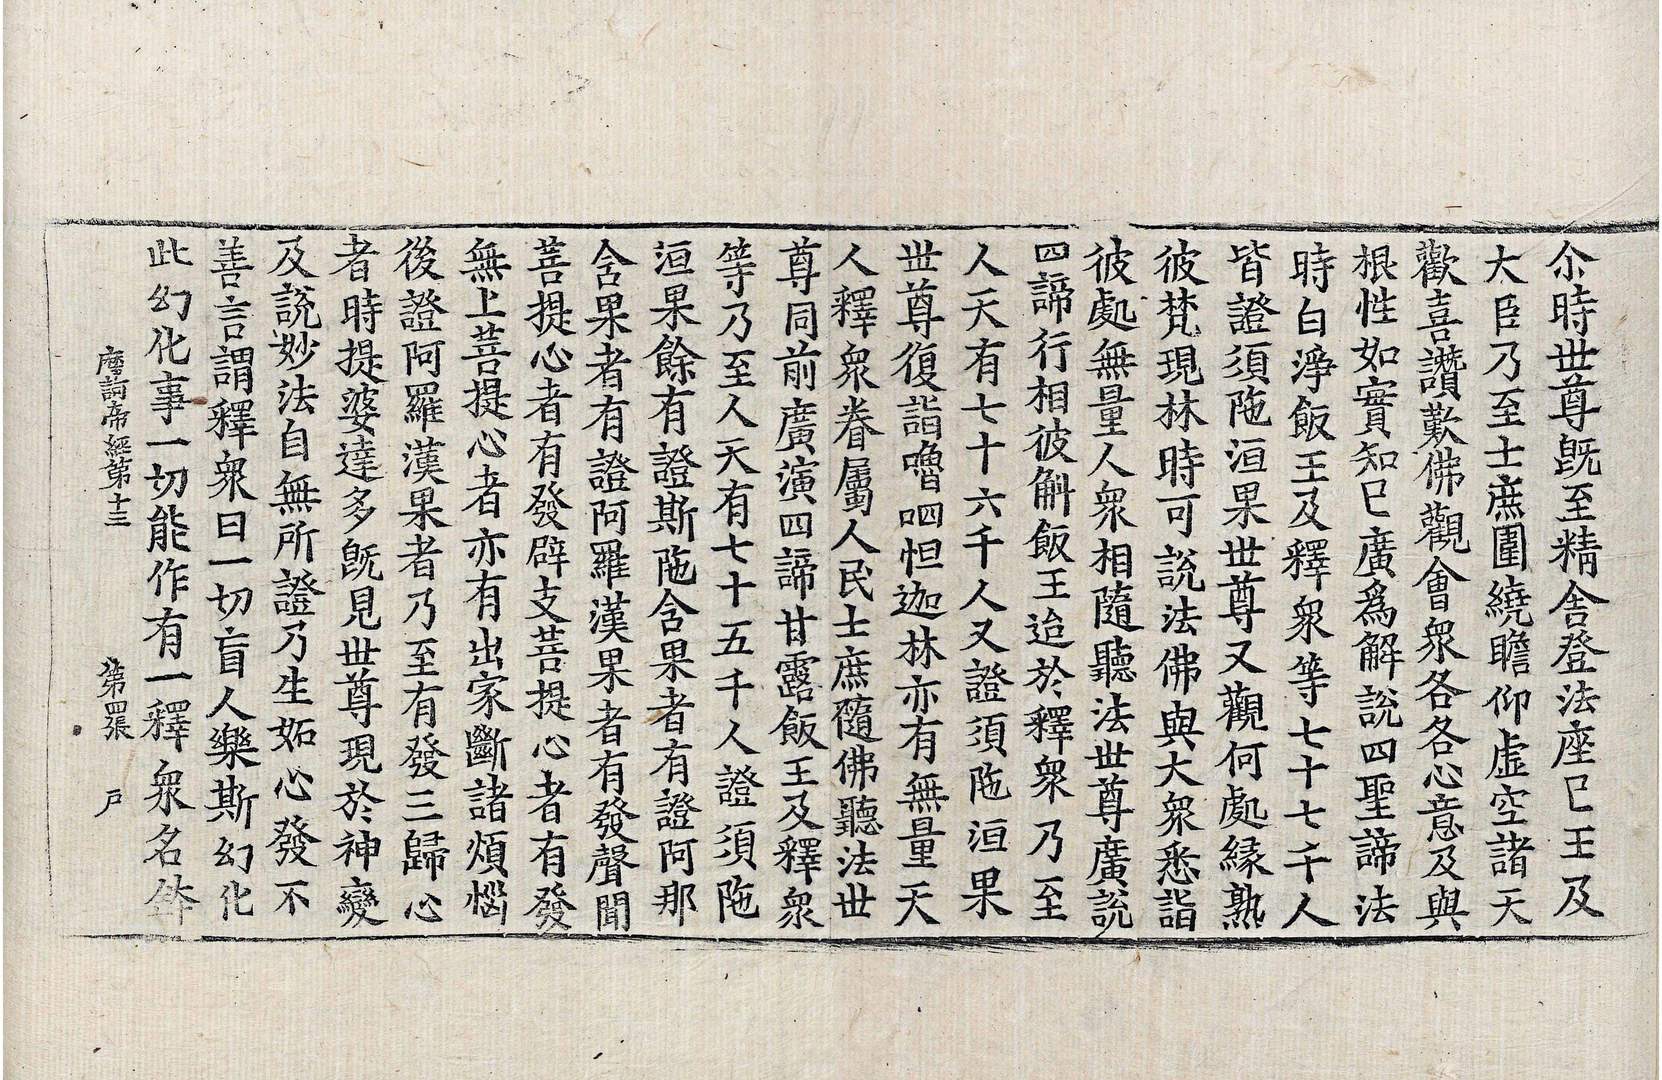 尒時世尊旣至精舍登法座已王及
大臣乃至士庶圍繞瞻仰虛空諸天
歡喜讚歎佛觀會衆各各心意及與
根性如實知已廣爲解說四聖諦法
時白淨飯王及釋衆等七十七千人
皆證須陁洹果世尊又觀何處緣熟
彼梵現林時可說法佛與大衆悉詣
彼處無量人衆相隨聽法世尊廣說
四諦行相彼斛飯王迨於釋衆乃至
人天有七十六千人又證須陁洹果
世尊復詣嚕呬怛迦林亦有無量天
人釋衆眷屬人民士庶隨佛聽法世
尊同前廣演四諦甘露飯王及釋衆
等乃至人天有七十五千人證須陁
洹果餘有證斯陁含果者有證阿那
含果者有證阿羅漢果者有發聲聞
菩提心者有發辟支菩提心者有發
無上菩提心者亦有出家斷諸煩惱
後證阿羅漢果者乃至有發三歸心
者時提婆達多旣見世尊現於神變
及說妙法自無所證乃生妬心發不
善言謂釋衆曰一切盲人樂斯幻化
此幻化事一切能作有一釋衆名鉢
摩訶帝經第十三 第四張 戶